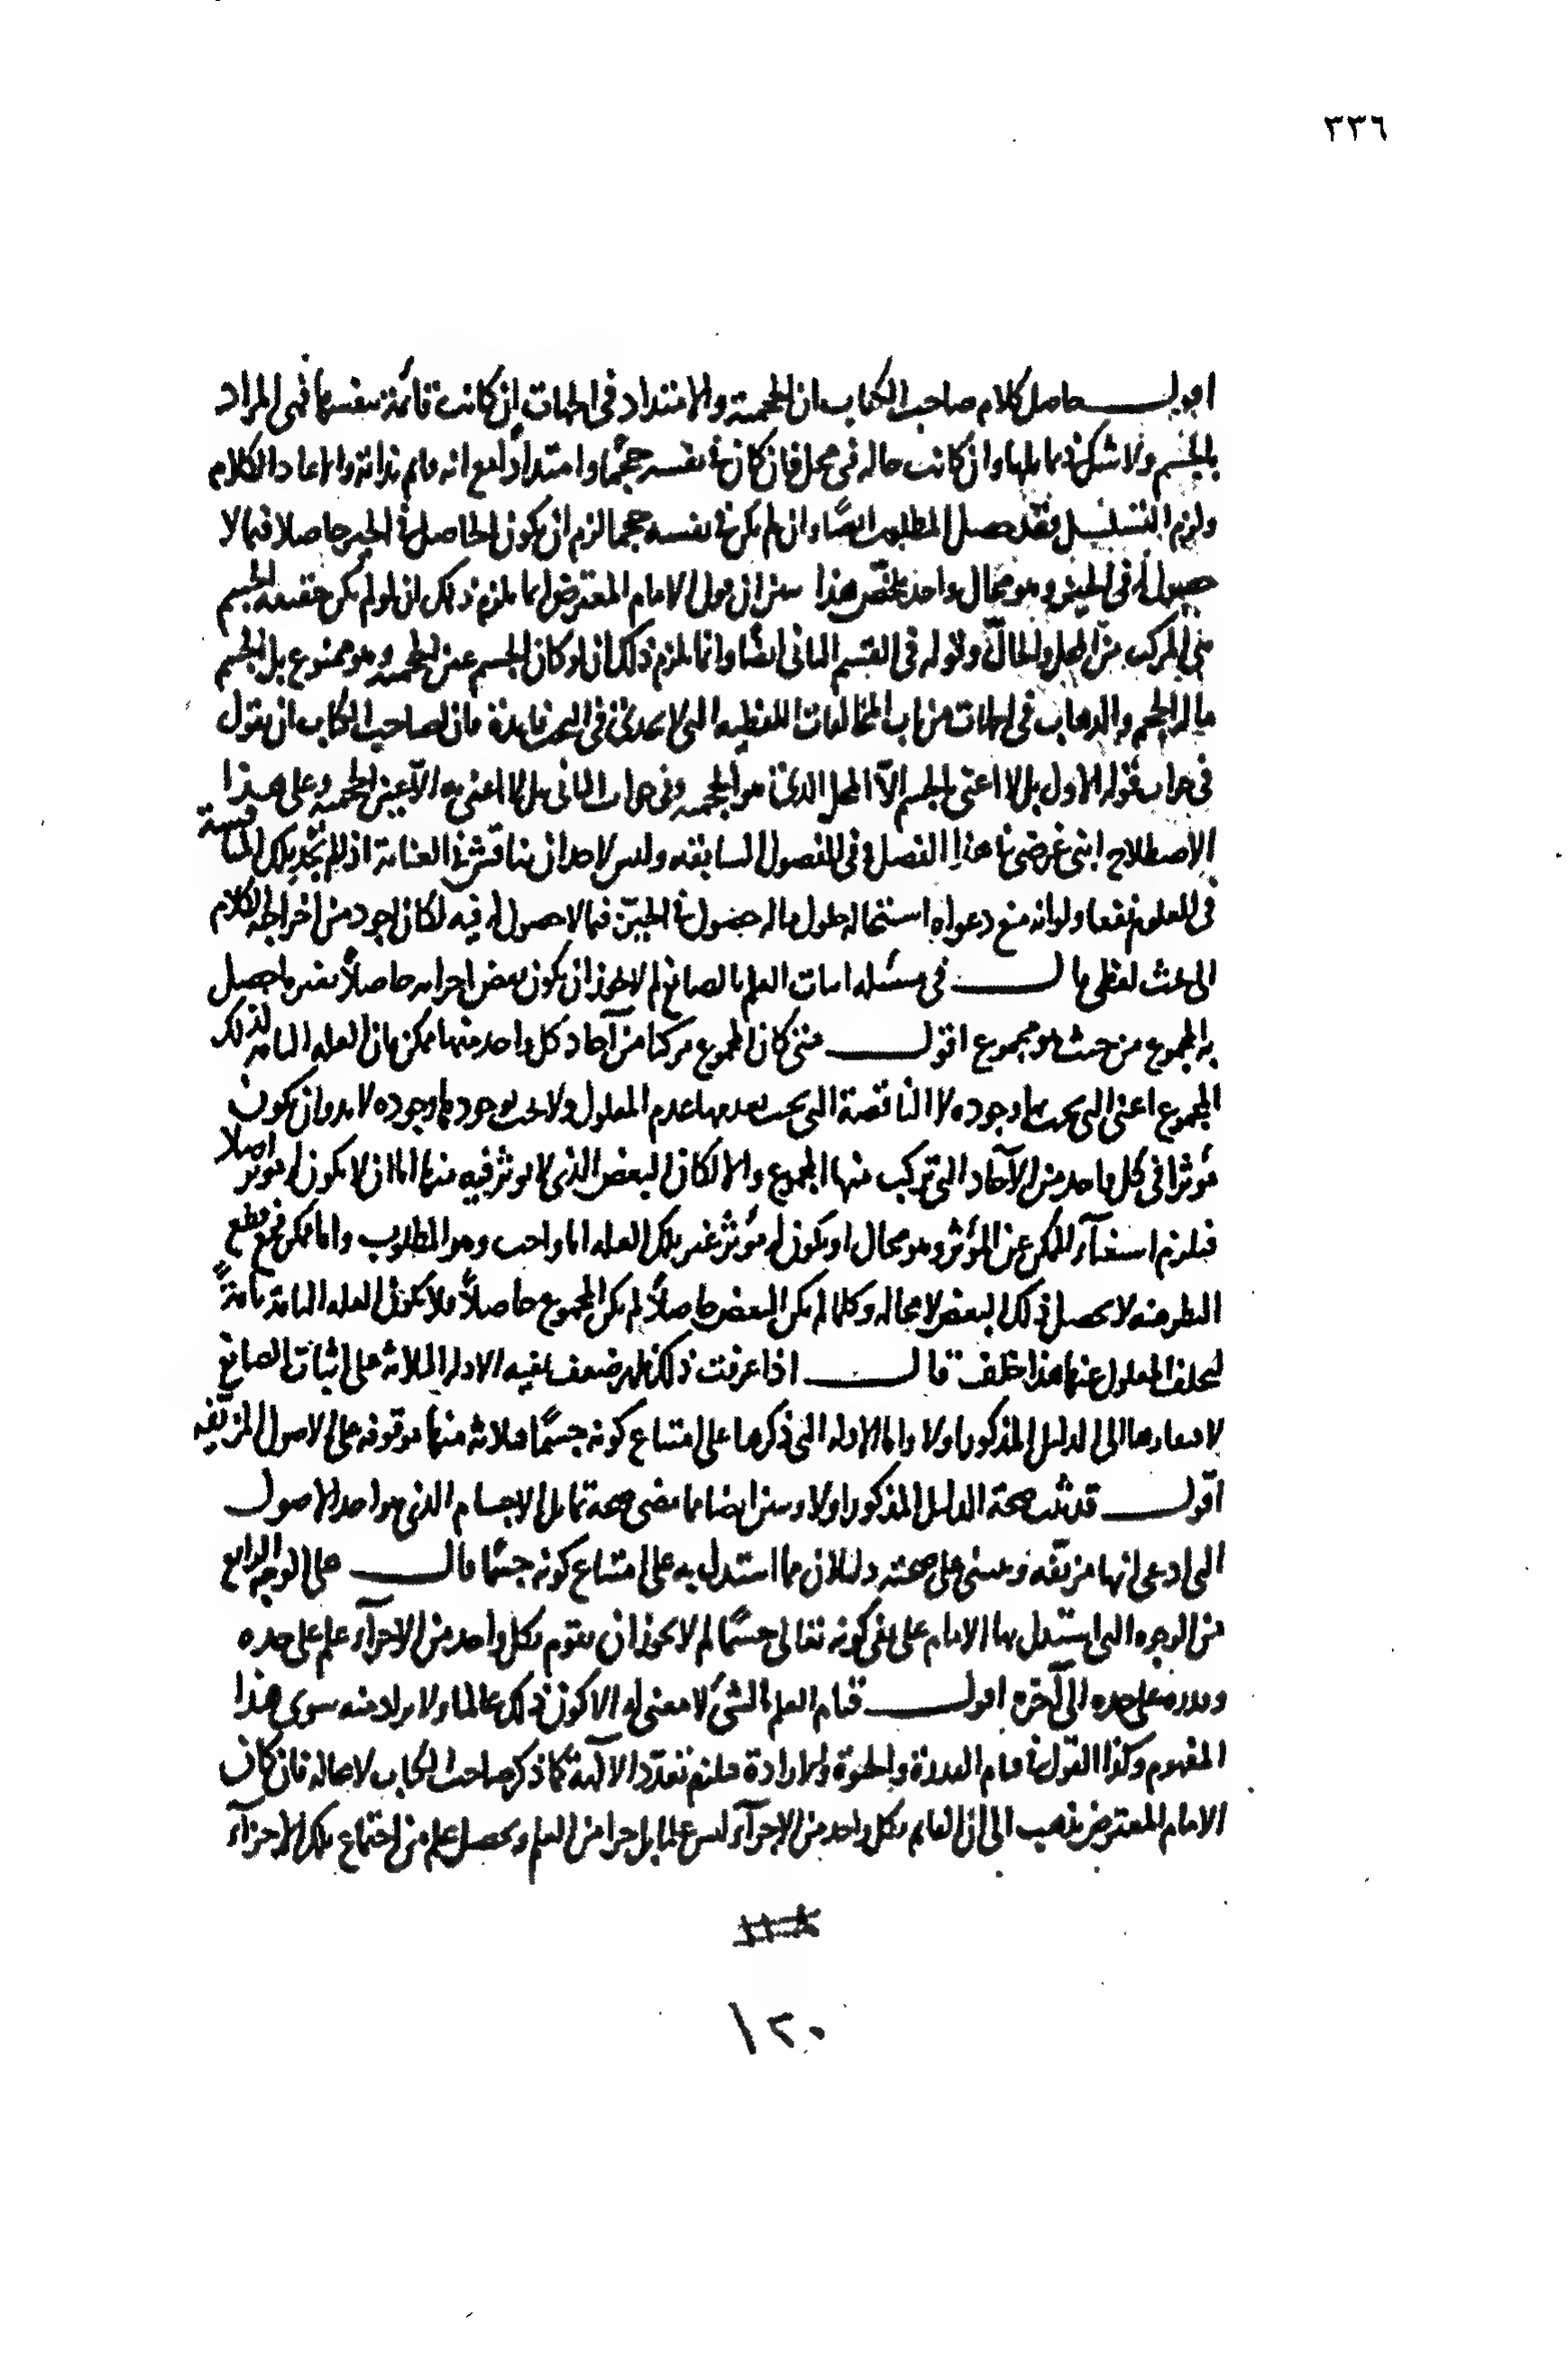 ٣٣٦
اقول حاصل كلام صاحب الكتاب ان الحجمية والامتداد في الجهات ان كانت قائمة بنفسها فهي المراد
بالجسم ولا شك في تماثلها وان كانت حاله في محل فان كان في نفسه حجمًا وامتدادًا مع انه قايم بذاته والا عاد الكلام
ولزم التسلسل فقد حصل المطلوب ايضًا وان لم يكن في نفسه حجما لزم ان يكون الحاصل في الحيز حاصلا فيما لا
حصول له في الحيز وهو محال واحد يلخص هذا سير ان قول الامام المعترض انما يلزم ذلك ان لو لم يكن حقيقه الجسم
هي المركب من المحل والحالّ وقوله في القسم الثاني ايضًا وانما يلزم ذلك ان لو كان الجسم عين الحجمية وهو ممنوع بل الجسم
ما له الحجم والذهاب في الجهات من باب المخالفات اللفظيه التي لا تجدي في البحث فايدة فان لصاحب الكتاب ان يقول
في جواب قوله الاول بل لا اعني بالجسم الّا المحل الذي هو الحجمية وفي جواب الثاني بل لا اعني به الّا عين الحجمية وعلى هذا
الاصطلاح ابني غرضي في هذا الفصل وفي الفصول السابقه وليس لاحد ان يناقش في العناية اذ لم تجد تلك المناقشة
في العلوم نفعا ولو انه منع دعواه استحاله حلول ما له حصول في الحيّز فيما لا حصول له فيه لكان اجود من اخراجه الكلام
الى بحث لفظي قال في مسئله اثبات العلم بالصانع لم لا يجوز ان يكون بعض اجزايه حاصلاً بغير ما حصل
به المجموع من حيث هو مجموع اقول متى كان المجموع مركبا من آحاد كل واحد منها ممكن فان العله التامه لذلك
المجموع اعني التي يجب بها وجوده لا الناقصة التي يجب بعدمها عدم المعلول ولا يجب بوجودها وجوده لا بد وان يكون
مؤثرا في كل واحد من الآحاد التي تركب منها المجموع والا لكان البعض الذي لا يوثر فيه منها اما ان لا يكون له موثر اصلا
فيلزم استغنآء الممكن عن المؤثر وهو محال او يكون له مؤثر غير تلك العله اما واجب وهو المطلوب واما ممكن فمع قطع
النظر عنه لا يحصل ذلك البعض لا محاله وكلما لم يكن البعض حاصلاً لم يكن المجموع حاصلاً فلا يكون العله التامة تامةً
لتخلف المعلول عنها هذا خلف قال اذا عرفت ذلك ظهر ضعف بقيه الادله الثلاثه على اثبات الصانع
لافتقارها الى الدليل المذكور اولا واما الادله التي ذكرها على امتناع كونه جسمًا فثلاثه منها موقوفه على الاصول المزيّفه
اقول قد ثبت صحة الدليل المذكور اولا وسير ايضا مما مضى صحة تماثل الاجسام الذي هو احد الاصول
التي ادعى انها مزيّفه ويبنى على صحته دليلان مما استدل به على امتناع كونه جسمًا قال على الوجه الرابع
من الوجوه التي استدل بها الامام على نفي كونه تعالى جسمًا لم لا يجوز ان يقوم بكل واحد من الاجزآء علم على حده
وقدره على حده الى آخره اقول قيام العلم بالشئ لا معنى له الا كون ذلك عالما ولا يراد منه سوى هذا
المفهوم وكذا القول في قيام القدرة والحيوة والارادة فيلزم تعدّد الآلهة كما ذكره صاحب الكتاب لا محاله فان كان
الامام المعترض يذهب الى ان القايم بكل واحد من الاجزآء ليس علما بل جزا من العلم ويحصل علم من اجتماع تلك الاجزآء
١٢٠